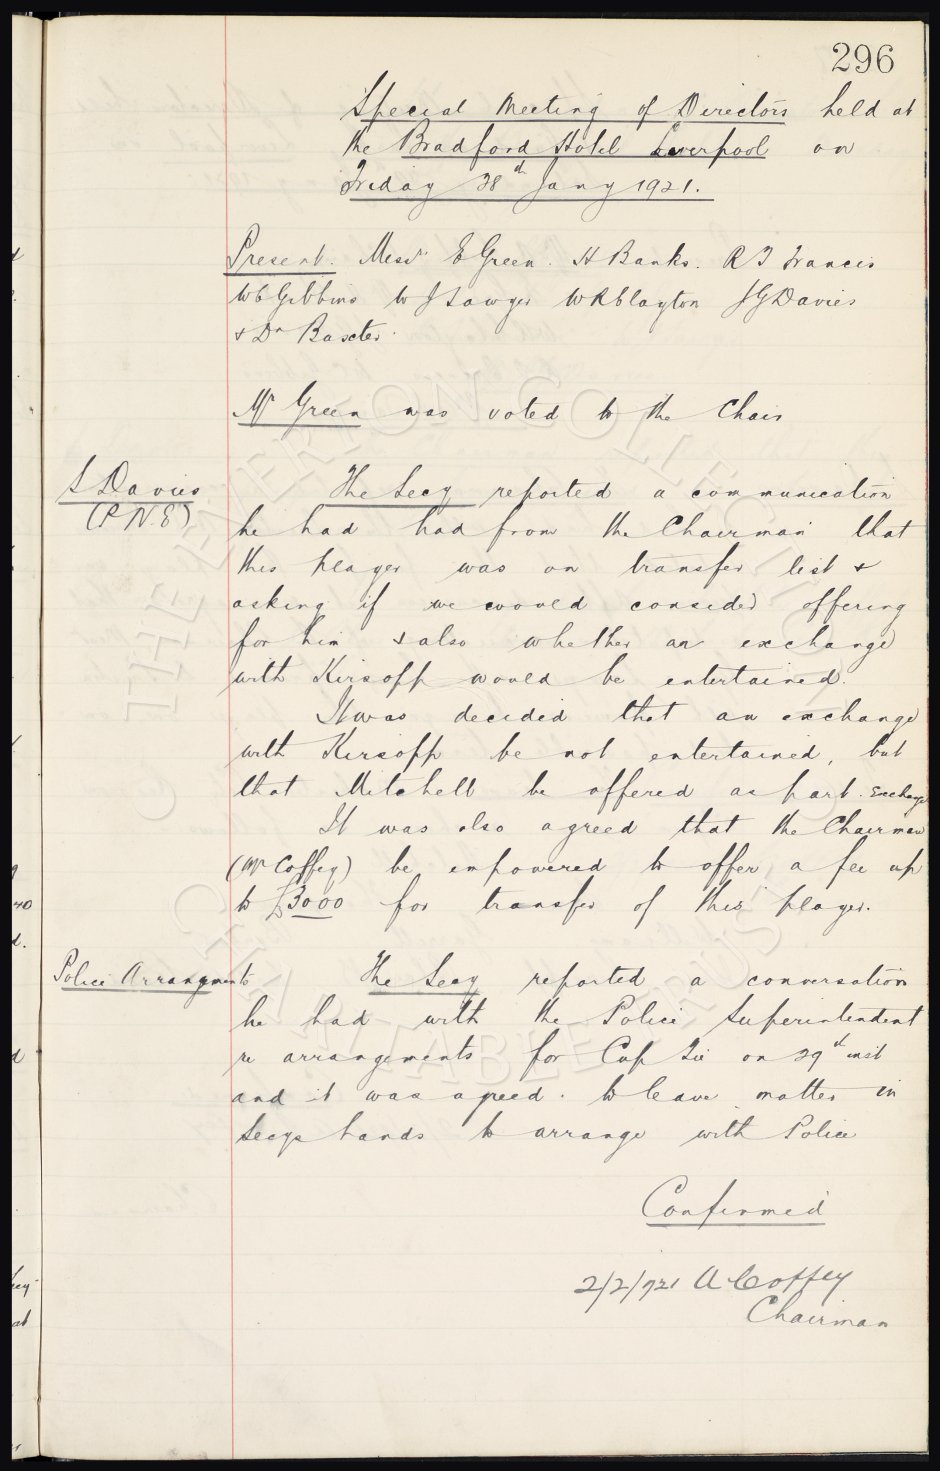 296
Special Meeting of Directors held at
the Bradford Hotel Liverpool on
Friday 28th Jany 1921.
Present. Messrs E Green. H Banks. R T Francis
W C Gibbins W J Sawyer W R Clayton J G Davies
& Dr Baxter.
Mr Green was voted to the Chair
S Davies
(P.N.E)
The Secy reported a communication
he had had from the Chairman that
this player was on transfer list &
asking if we would consider offering
for him & also whether an exchange
with Kirsopp would be entertained.
It was decided that an exchange
with Kirsopp be not entertained, but
that Mitchell be offered as part. Exchange
It was also agreed that the Chairman
(Mr Coffey) be empowered to offer a fee up
to £3000 for transfer of this player.
Police Arrangments
The Secy reported a conversation
he had with the Police Superintendent
re arrangements for Cup Tie on 29th inst
and it was agreed. to leave matter in
Secys hands to arrange with Police
Confirmed
2/2/921 A Coffey
Chairman
THE EVERTON COLLECTION
CHARITABLE TRUST